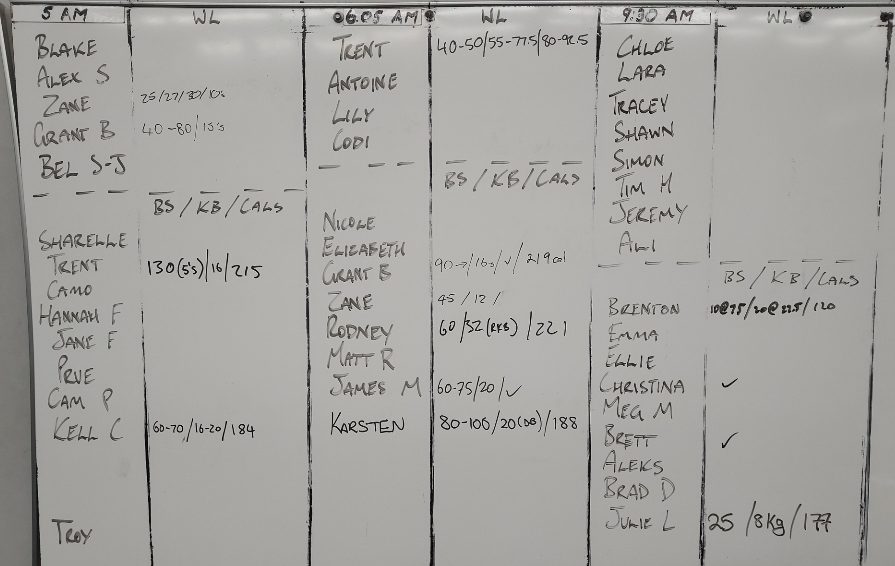 5 AM WL
BLAKE
ALEX S
ZANE 25/27/30/10s
GRANT B 40-80/15's
BEL S-J
BS / KB / CALS
SHARELLE
TRENT 130(5's)/16/215
CAMO
HANNAH F
JANE F
PRUE
CAM P
KELL C 60-70/16-20/184
TROY
06.05 AM WL
TRENT 40-50/55-77.5/80-92.5
ANTOINE
LILY
CODI
BS / KB / CALS
NICOLE
ELIZABETH
GRANT B
ZANE 45 / 12 /
RODNEY 60/32(RKB)/221
MATT R
JAMES M 60-75/20/✓
KARSTEN 80-100/20(DB)/188
9:30 AM WL
CHLOE
LARA
TRACEY
SHAWN
SIMON
TIM H
JEREMY
ALI
BS / KB / CALS
BRENTON 10@75/20@27.5/120
EMMA
ELLIE
CHRISTINA ✓
MEG M
BRETT ✓
ALEKS
BRAD D
JULIE L 25 /8Kg/177